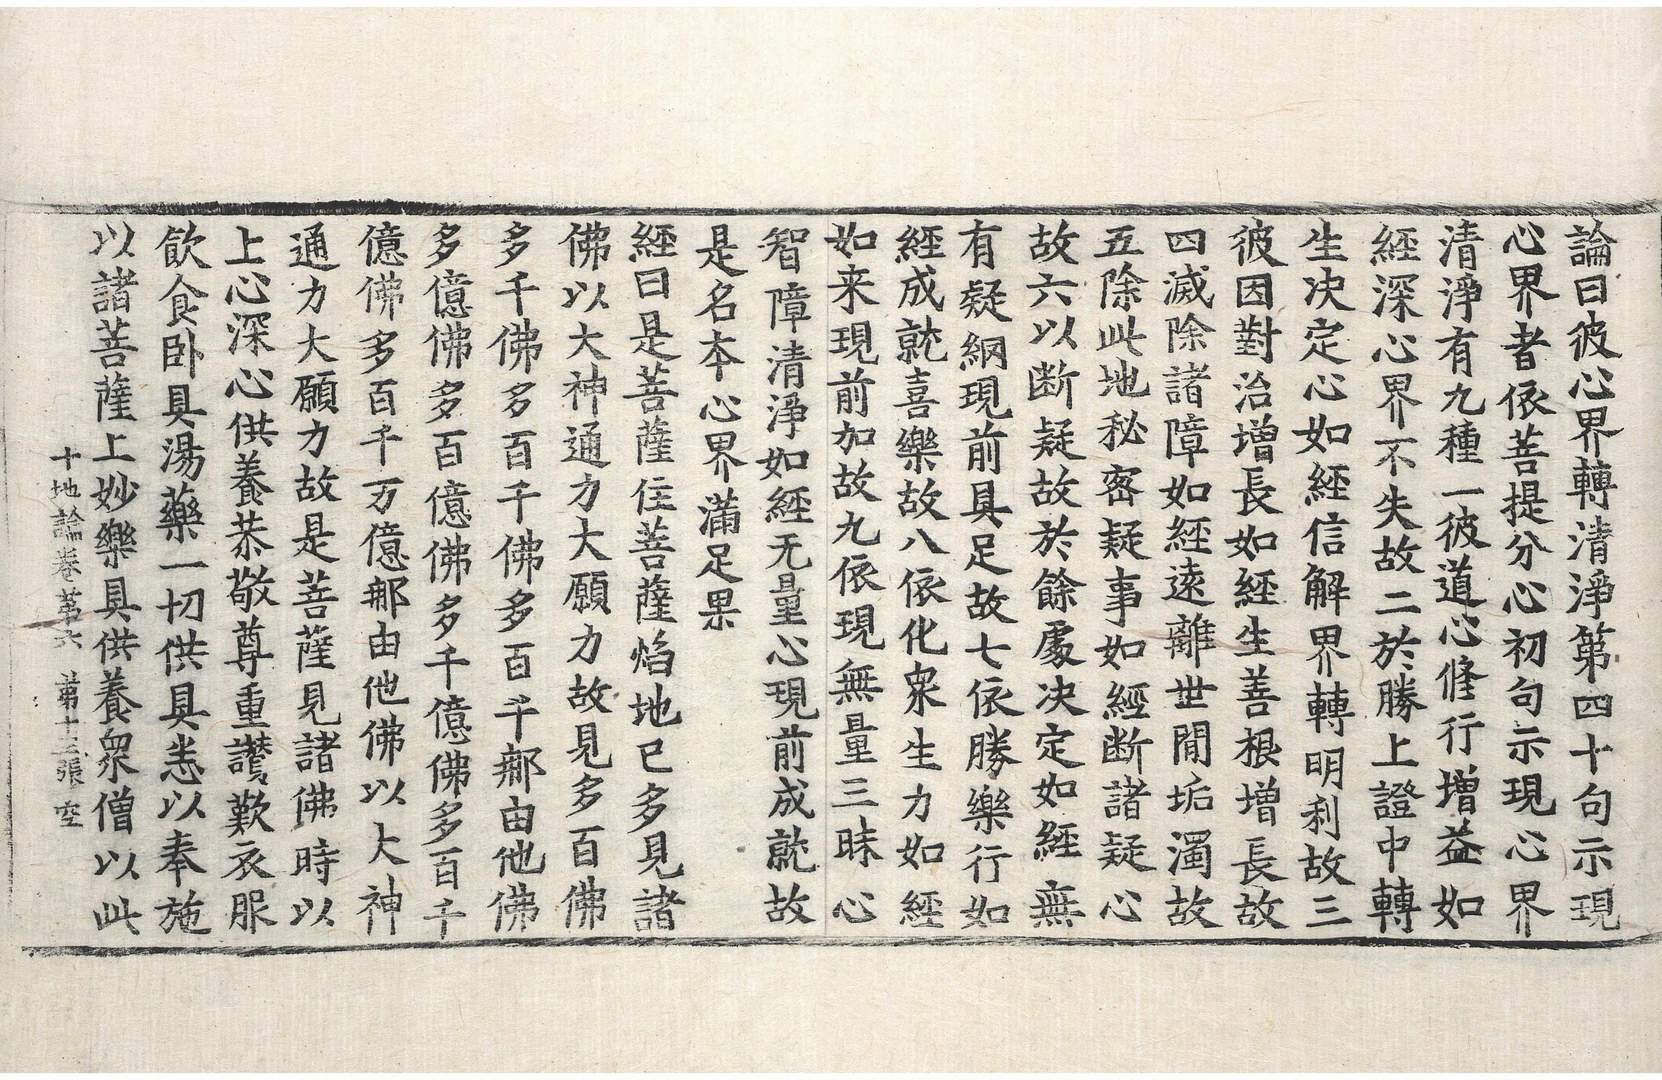 論曰彼心界轉清淨第四十句示現
心界者依菩提分心初句示現心界
清淨有九種一彼道心修行增益如
經深心界不失故二於勝上證中轉
生决定心如經信解界轉明利故三
彼因對治增長如經生善根增長故
四滅除諸障如經遠離世間垢濁故
五除此地秘密疑事如經断諸疑心
故六以断疑故於餘處决定如經無
有疑網現前具足故七依勝樂行如
經成就喜樂故八依化衆生力如經
如来現前加故九依現無量三昧心
智障清淨如經无量心現前成就故
是名本心界滿足果
經曰是菩薩住菩薩焰地已多見諸
佛以大神通力大願力故見多百佛
多千佛多百千佛多百千那由他佛
多億佛多百億佛多千億佛多百千
億佛多百千万億那由他佛以大神
通力大願力故是菩薩見諸佛時以
上心深心供養恭敬尊重讃歎衣服
飲食卧具湯藥一切供具悉以奉施
以諸菩薩上妙樂具供養衆僧以此
十地論卷第六　第十三張　空